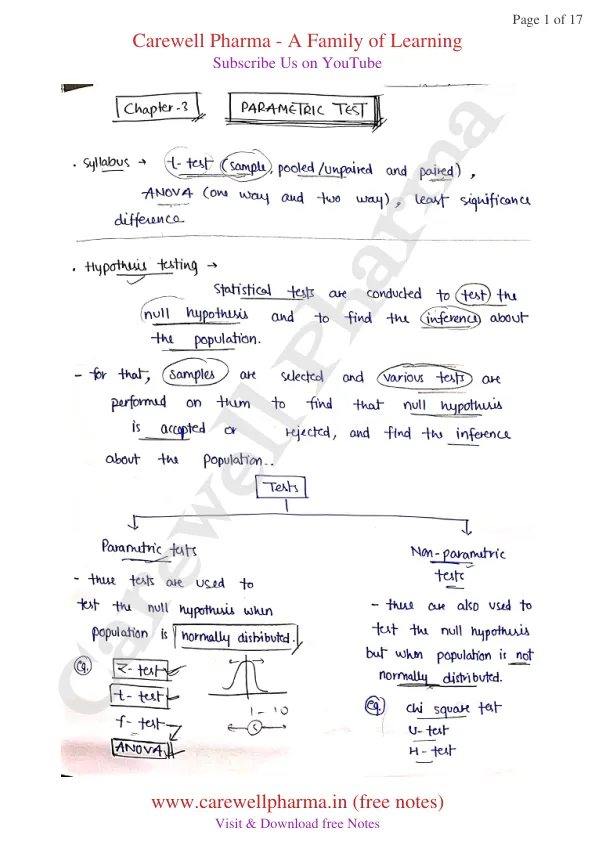 Page 1 of 17
Carewell Pharma - A Family of Learning
Subscribe Us on YouTube
Chapter-3 PARAMETRIC TEST
. Syllabus → t-test (sample, pooled/unpaired and paired),
ANOVA (one way and two way), least significance
difference
. Hypothesis testing →
Statistical tests are conducted to test the
null hypothesis and to find the inference about
the population.
- for that, samples are selected and various tests are
performed on them to find that null hypothesis
is accepted or rejected, and find the inference
about the population..
Tests
Parametric tests
- these tests are used to
test the null hypothesis when
population is normally distributed.
eg. z-test
t-test
f-test
ANOVA
1-10
5
Non-parametric
tests
- these are also used to
test the null hypothesis
but when population is not
normally distributed.
eg. chi square test
U-test
H-test
Carewell Pharma
www.carewellpharma.in (free notes)
Visit & Download free Notes